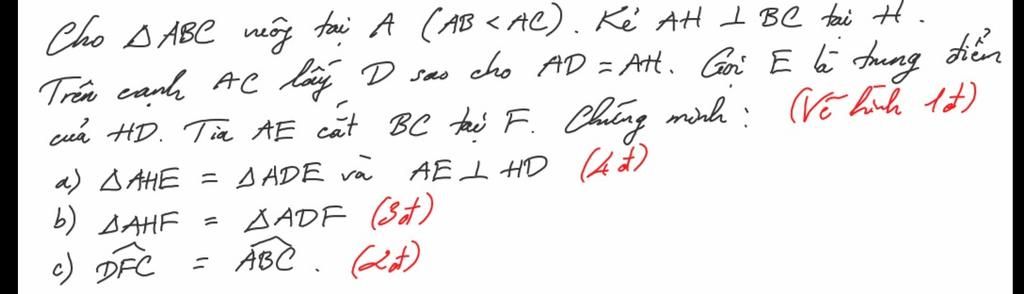 Cho △ABC vuông tại A (AB < AC). Kẻ AH ⊥ BC tại H.
Trên cạnh AC lấy D sao cho AD = AH. Gọi E là trung điểm
của HD. Tia AE cắt BC tại F. Chứng minh: (Vẽ hình 1đ)
a) △AHE = △ADE và AE ⊥ HD (4đ)
b) △AHF = △ADF (3đ)
c) \widehat{DFC} = \widehat{ABC}. (2đ)